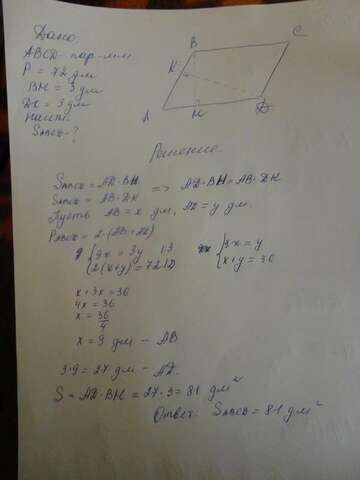 Дано:
ABCD - пар-мм.
P = 72 дм
BH = 3 дм
найти
SABCD - ?
B
C
K
A
H
D
Решение.
SABCD = AD·BH
=> AD·BH = AB·DK
SABCD = AB·DK
Пусть AB = x дм, AD = y дм.
PABCD = 2·(AB+AD)
3y |:3
2(x+y) = 72 |:2
3x = y
x+y = 36
x + 3x = 36
4x = 36
x = 36/4
x = 9 дм - AB
3·9 = 27 дм - AD.
S = AD·BH = 27·3 = 81 дм²
Ответ: SABCD = 81 дм²